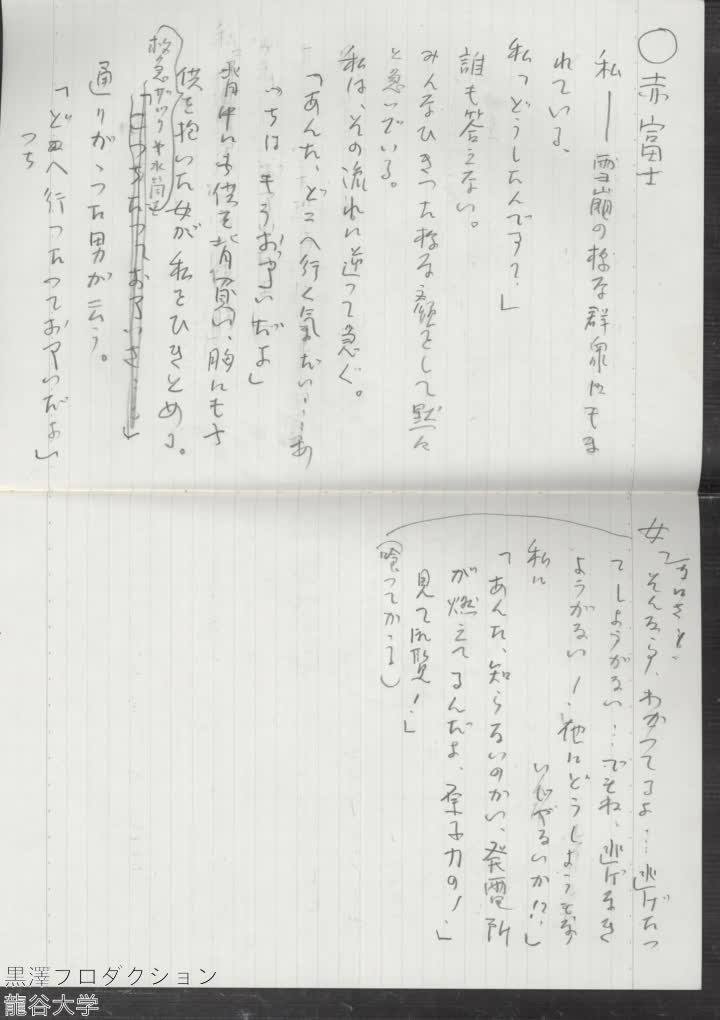 ○赤富士
私――雪崩の様な群衆にもま
れている、
私「どうしたんです?」
誰も答えない。
みんなひきつった様な顔をして黙々
と急いでいる。
私は、その流れに逆って急ぐ。
「あんた、どこへ行く気だい……あ
っちはもうお了いだよ」
背中にも子供を背負い、胸にも子
供を抱いた女が私をひきとめる。
救急ザックや水筒
通りかゝった男が云う。
「どこへ行ったってお了いだよ」
っち
女「そんな事、わかってるよ……逃げたっ
てしようがない……でもね、逃げなき
ようがない!他にどうしようもな
いじゃないか!?」
私に
「あんた、知らないのかい、発電所
が燃えてるんだよ、原子力の!」
見て御覧!」
(喰ってかゝる)
黒澤プロダクション
龍谷大学